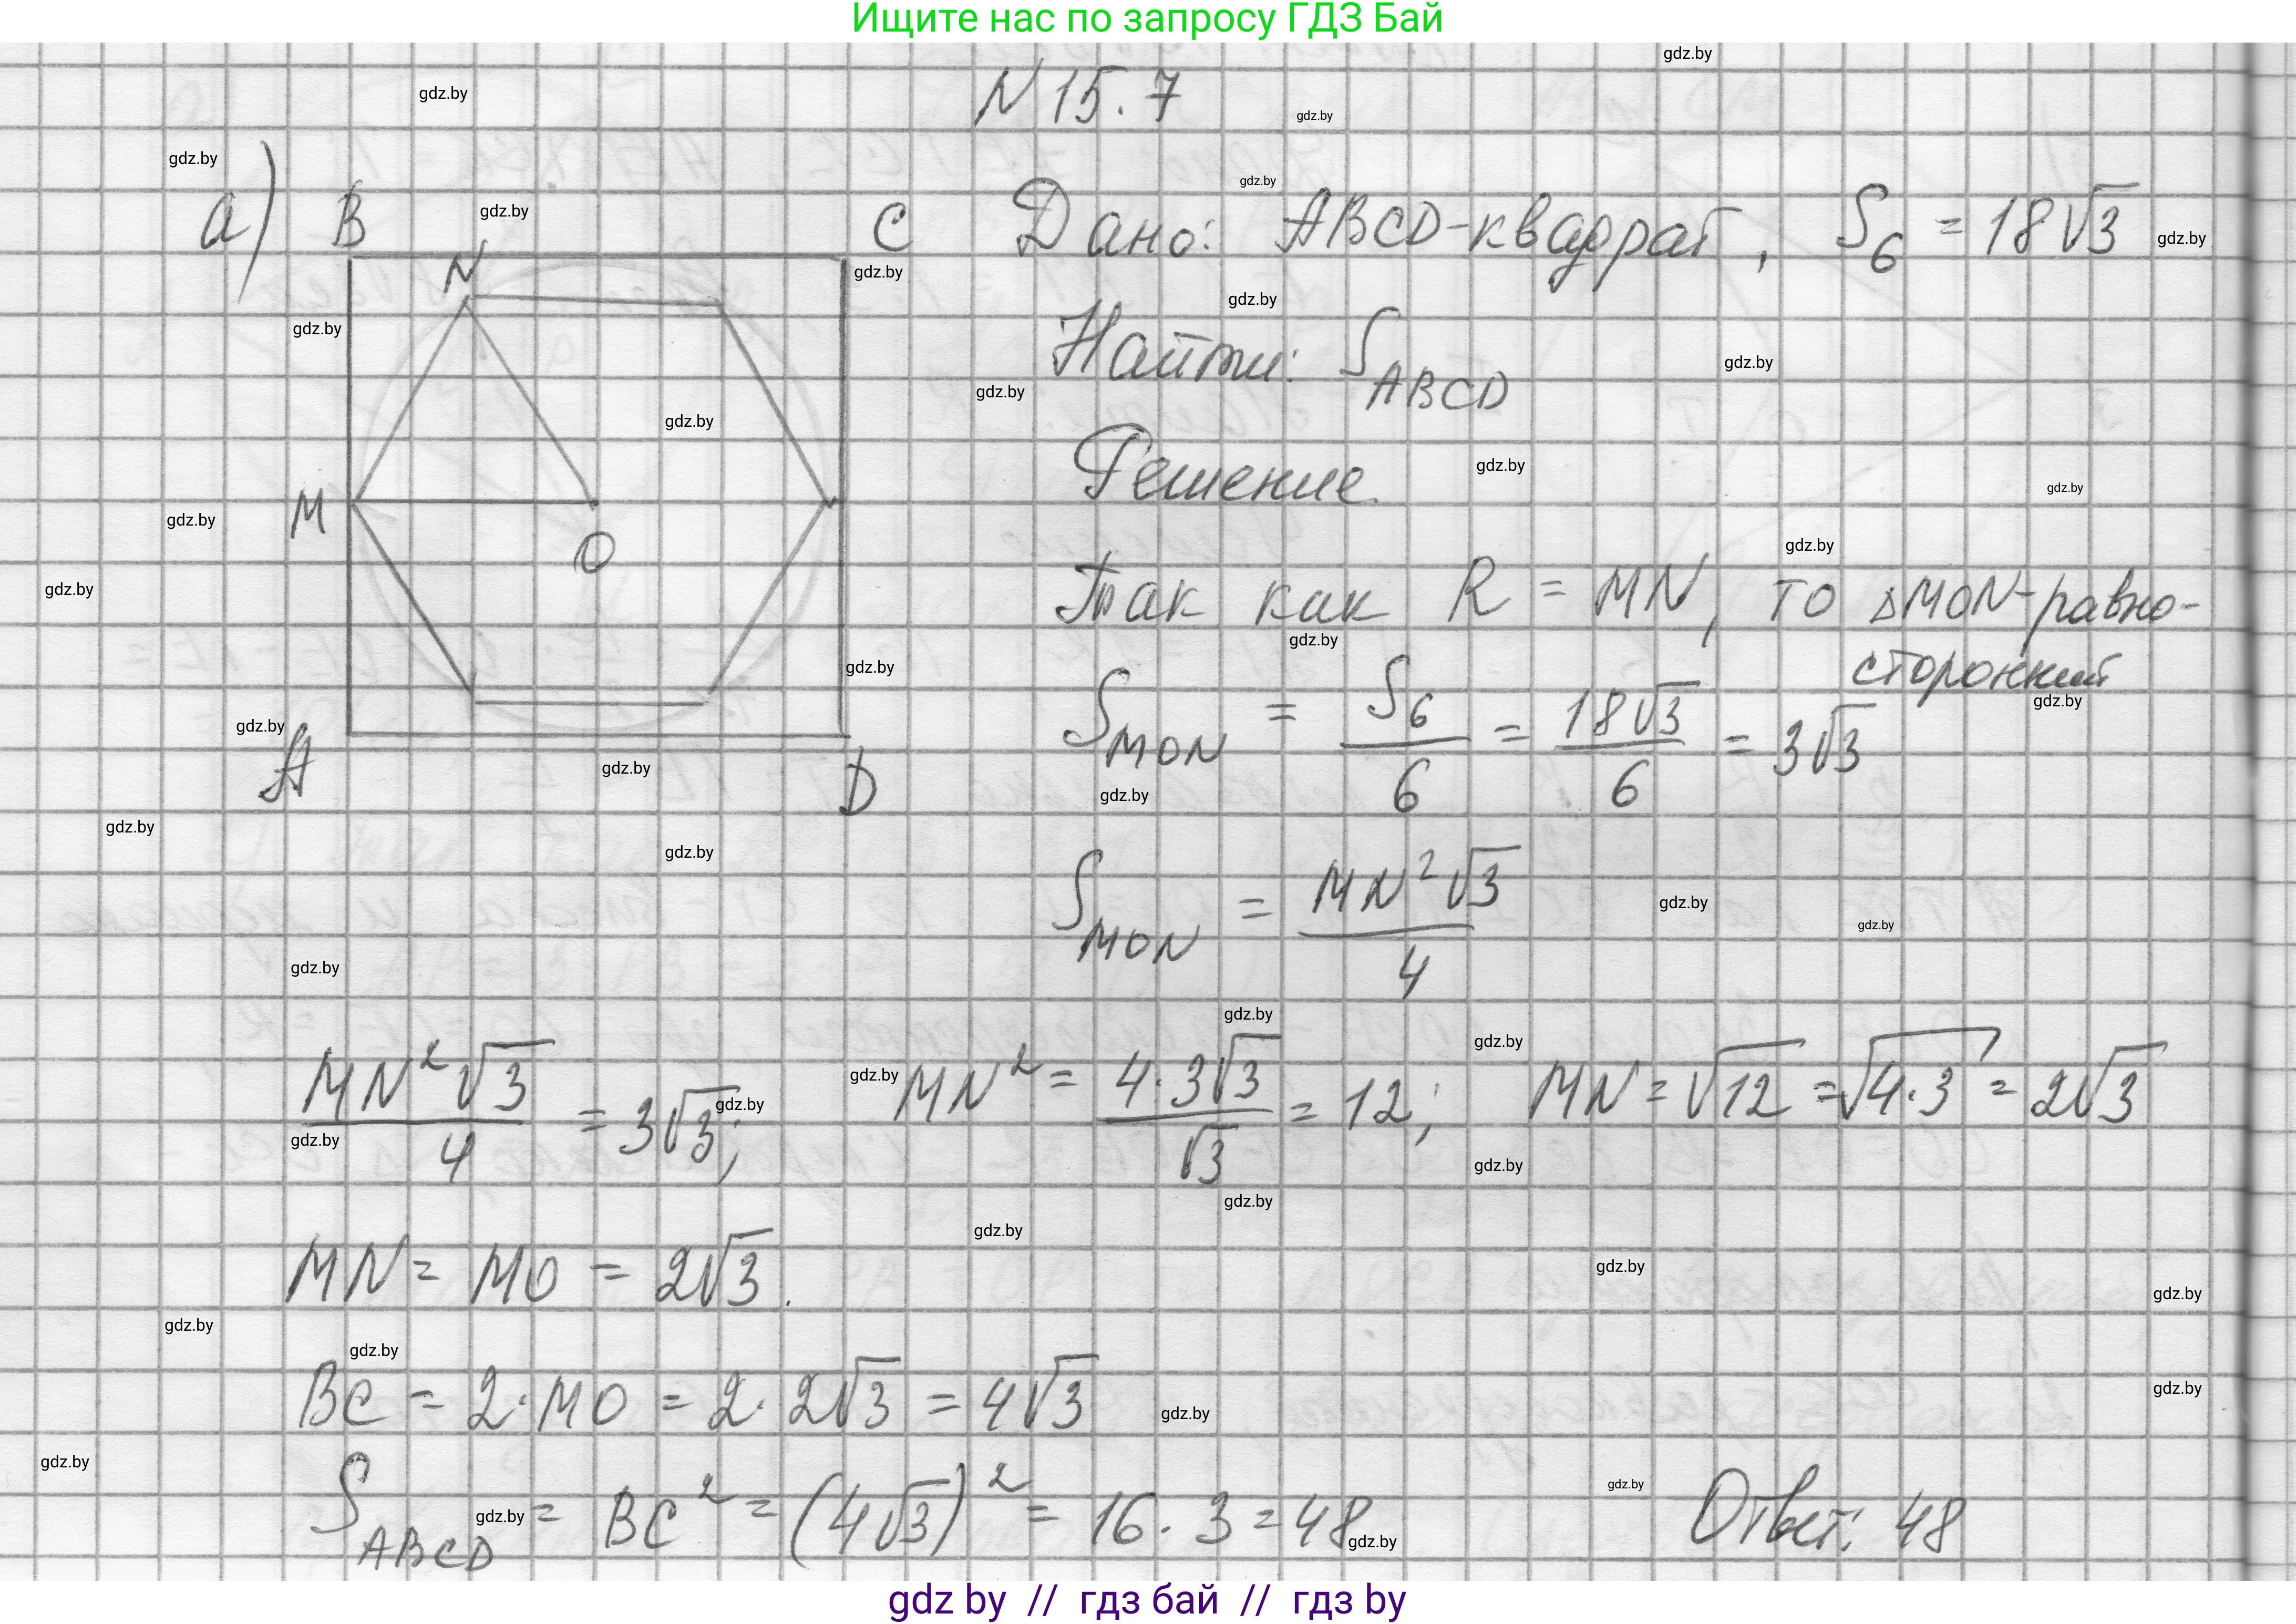 Ищите нас по запросу ГДЗ Бай
N 15.7
а) B N C M O A D
Дано: ABCD-квадрат, S₆ = 18√3
Найти: S_ABCD
Решение.
Так как R = MN, то △MON-равно-
сторонний
S_MON = S₆/6 = 18√3/6 = 3√3
S_MON = MN²√3/4
MN²√3/4 = 3√3; MN² = 4·3√3/√3 = 12; MN = √12 = √4·3 = 2√3
MN = MO = 2√3.
BC = 2·MO = 2·2√3 = 4√3
S_ABCD = BC² = (4√3)² = 16·3 = 48
Ответ: 48
gdz.by
gdz by // гдз бай // гдз by